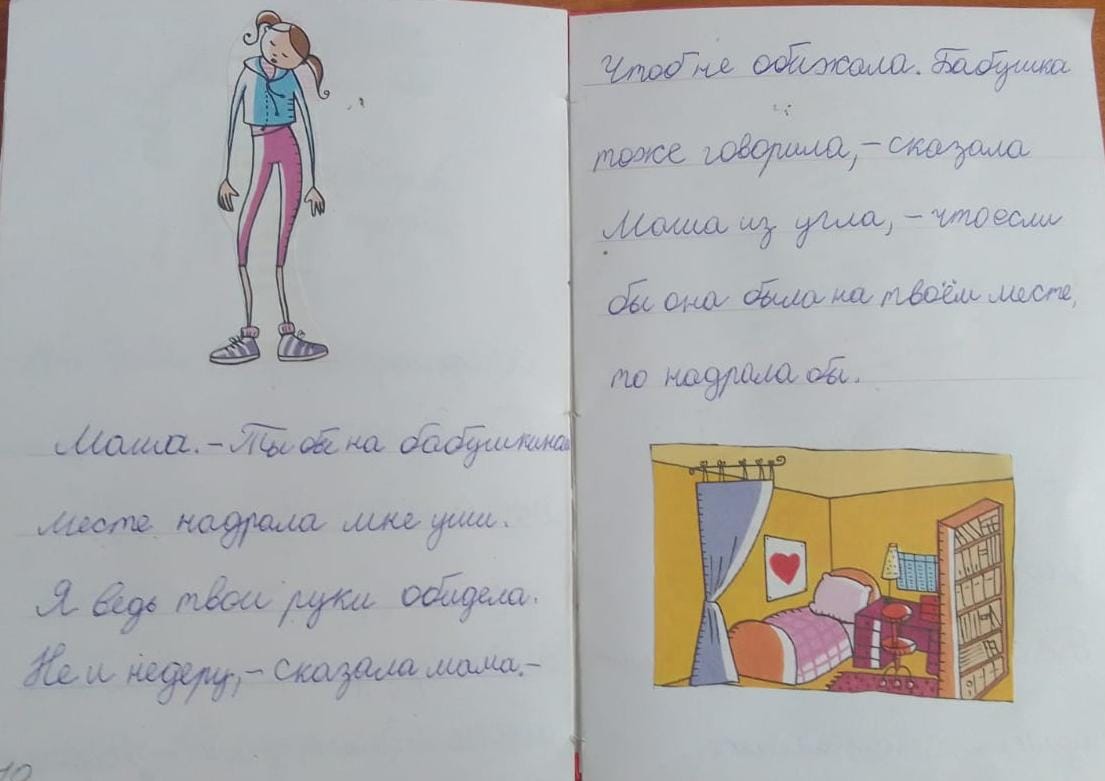 Маша. - Ты бы на бабушкином
месте надрала мне уши.
Я ведь твои руки обидела.
Не и недеру, - сказала мама. -
Чтоб не обижала. Бабушка
тоже говорила, - сказала
Маша из угла, - что если
бы она была на твоём месте,
то надрала бы.